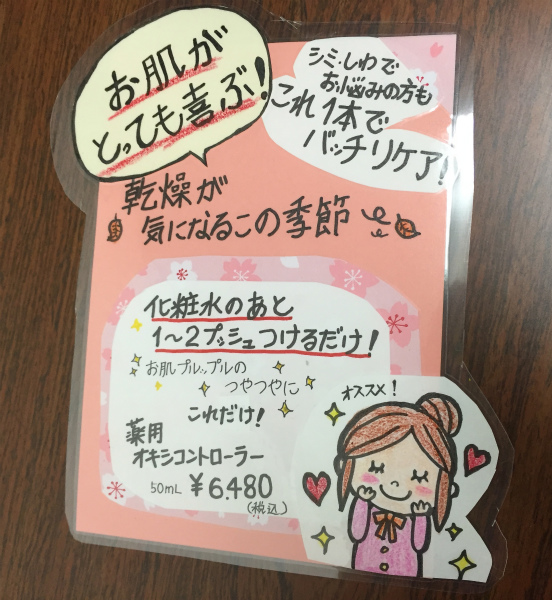 お肌が
とっても喜ぶ!
シミ・しわで
お悩みの方も
これ1本で
バッチリケア!
乾燥が
気になるこの季節
化粧水のあと
1〜2プッシュつけるだけ!
お肌プルップルの
つやつやに
これだけ!
薬用
オキシコントローラー
50mL ¥6,480
(税込)
オススメ!